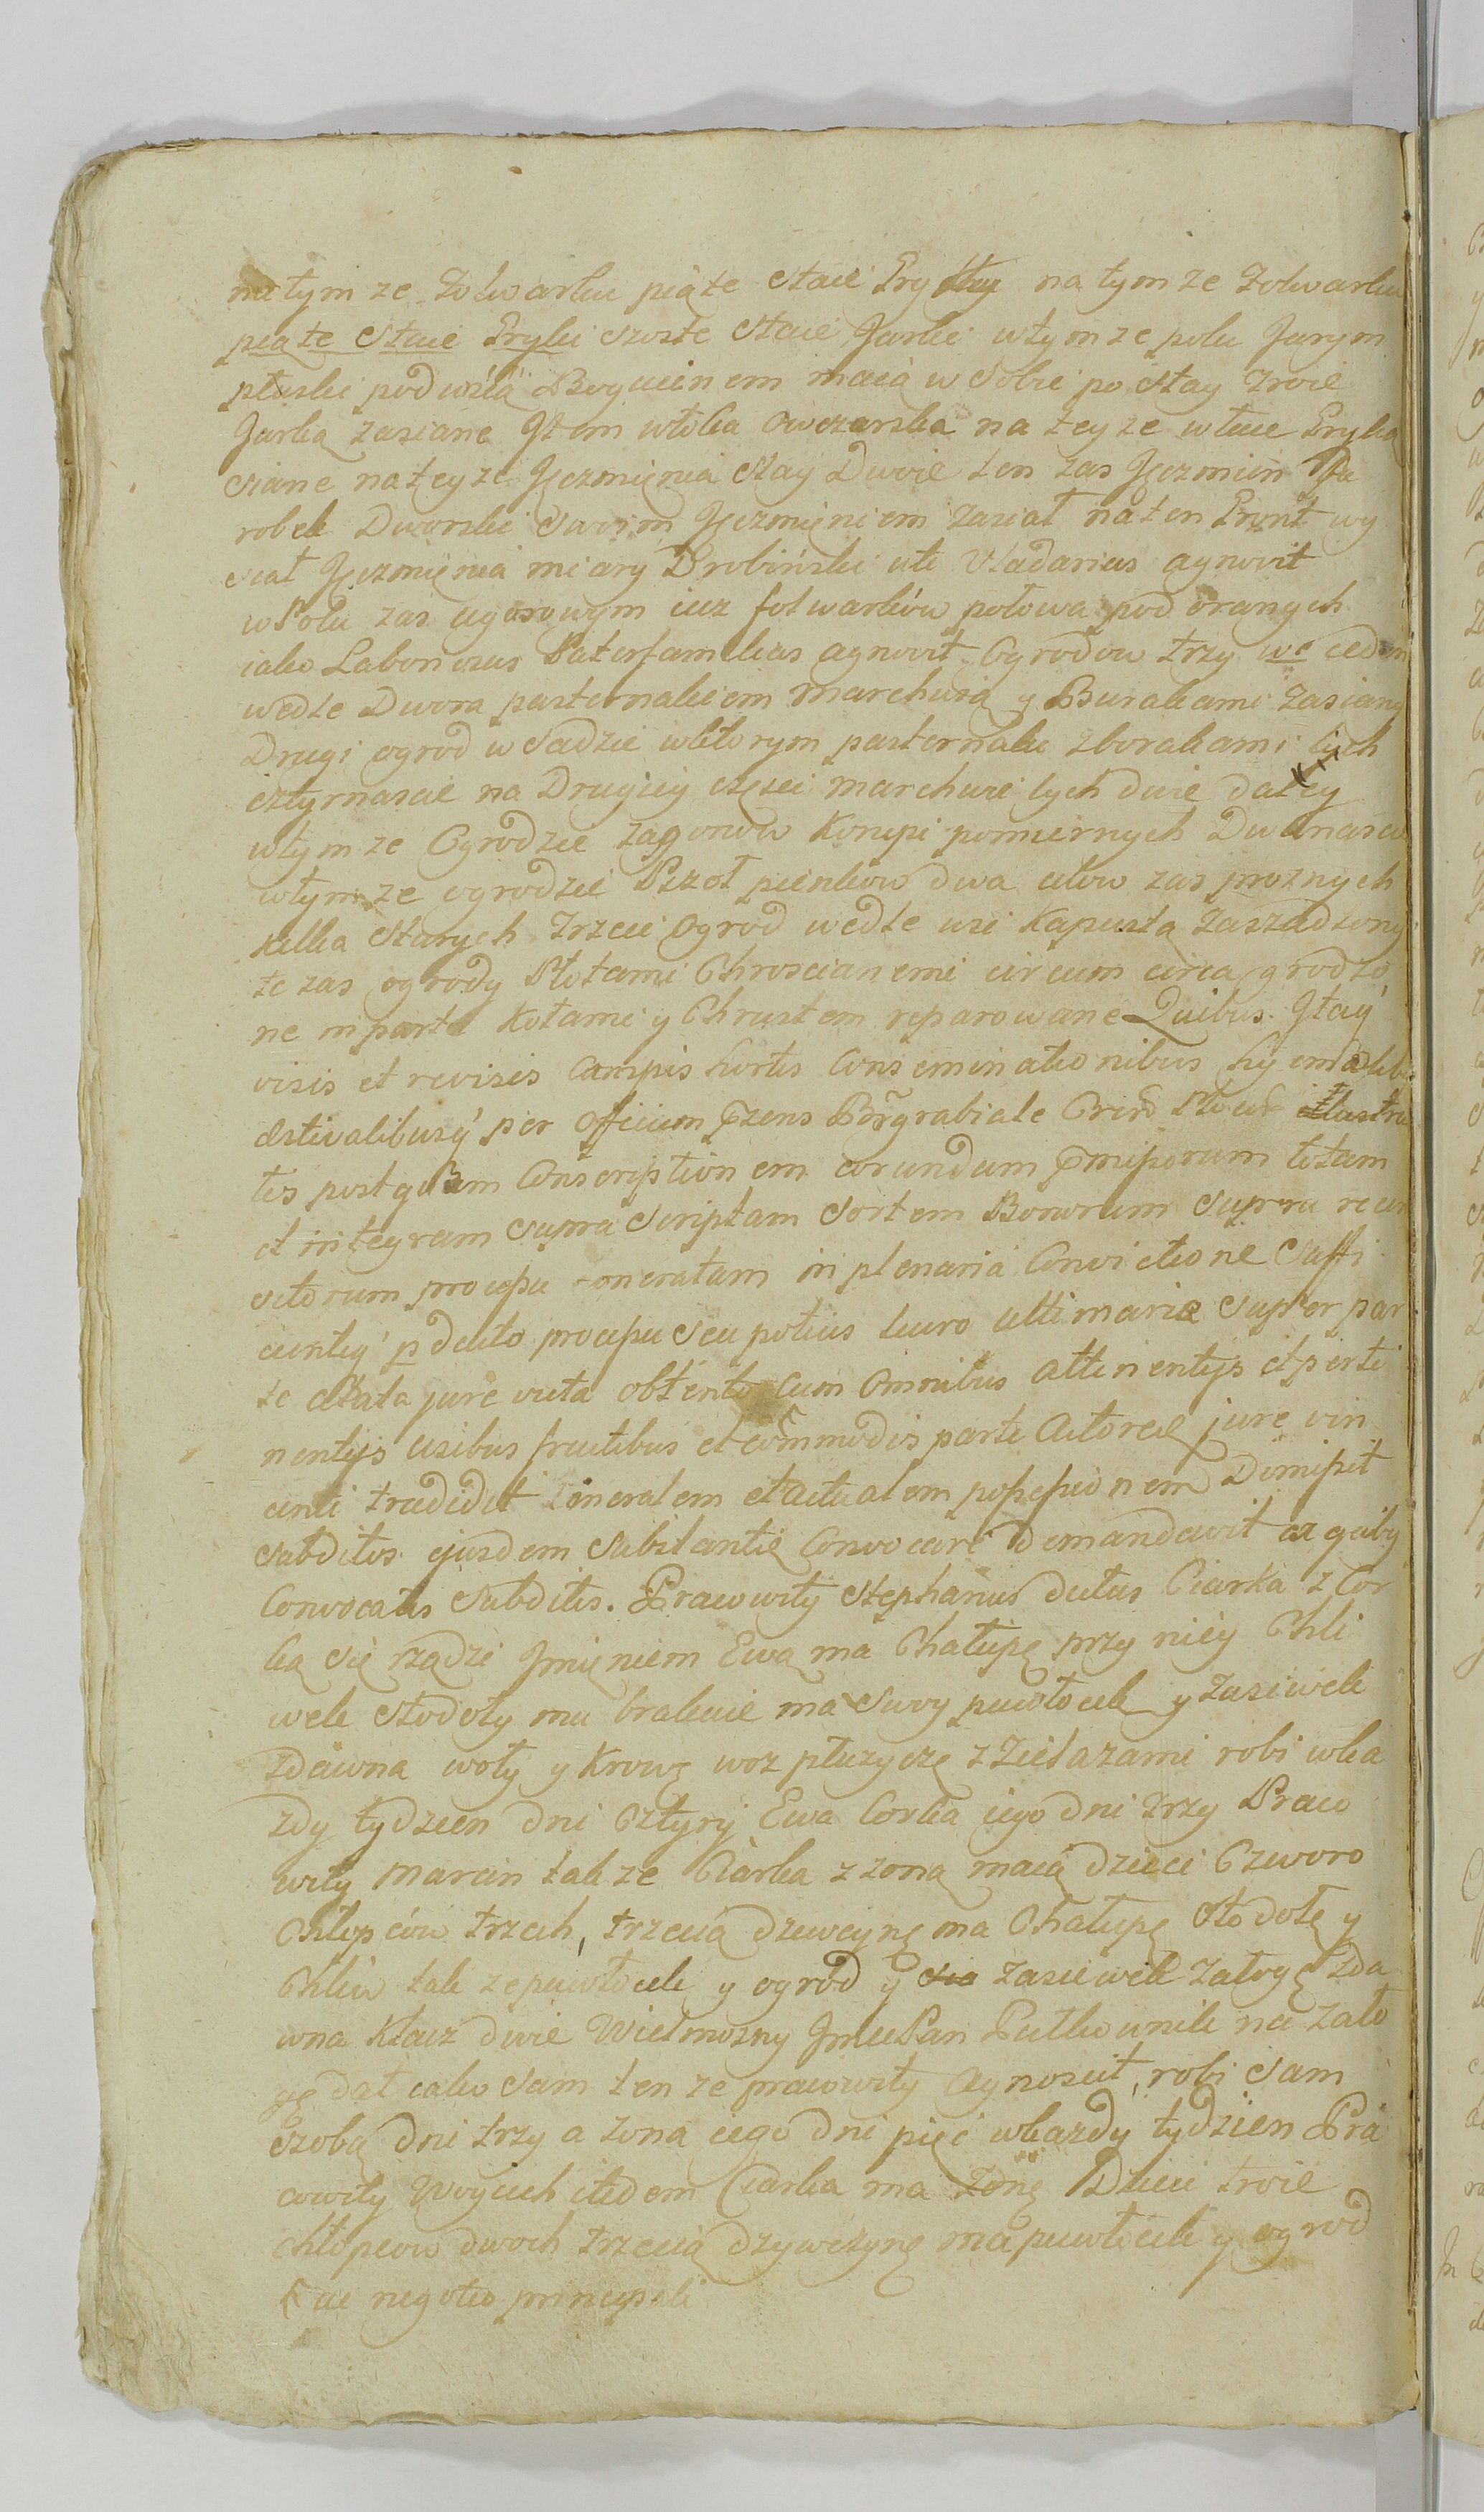 na tym ze folwarku piąte staie Gryki na tym ze folwarku
piąte staie Gryki szoste staie Jarki w tym ze polu Jarym
płuski pod wsią Bogucinem maią w sobie po stay troie
Jarką zasiane Item włoka owczarska na tey ze włuce Gryką
siane na tey ze Jęczmięnia stay Dwoie ten zas Jęczmien Pa
robek Dworski swoim Jęczmięniem zasiał na ten Grunt wy
siał Jęczmięnia miary Drobiński uti Vladarius agnovit
w Polu zas ugorowym iuz folwarków połowa pod oranych
iako Laboriosus Paterfamilias agnovit Ogrodow trzy we ieden
wedle Dwora pasternakiem marchwią y Burakami zasiany
Drugi ogrod w Sadzie w ktorym pasternaku z borakami tych
cztyrnascie na Drugiey częsci marchwie tych dwie daley
w tym ze Ogrodzie zagonow Konopi pomiernych Dwanascie
w tym ze ogrodzie Pszoł pienkow dwa ulow zas proznych
kilka starych Trzeci ogrod wedle wsi Kapustą zaszadzony
te zas ogrody Płotami Chroscianemi circum circa grodzo
ne in parte Kołami y Chrustem reparowane Quibus Itaq'
visis et revisis Campis hortis Conseminationibus hyemalibus
aestivalibusq' per officium pzens Burgrabiale illustra
tis post quam Conscriptionem eorundum pmissorum totam
et integram supra scriptam sortem Bonorum supra recen
sitorum procepu oneratam in plenaria Convictione suffi
cientiq' pdicto procepu seu potius lucro ultimarie super par
te citata jure victa obtento Cum omnibus attinentijs et perti
nentijs usibus fructibus et commodis parti Actoreae jure vin
centi tradidit realem et actualem possessionem Dimisit
subditos ejusdem substantiae Convocari demandavit ac quibus
Convocatis Subditis. Prawowity Stephanus dictus Ciarka z Cor
ką się rządzi Jmięniem Ewą ma Chałupę przy niey Chli
wek stodoły mu brakuie ma swoy puwłocek y zasiwek
zdawna woły y krowę woz płuzycę z Zielazami robi w ka
zdy tydzien dni cztyry Ewa Corka iego dni trzy Praw
wity Marcin takze Ciarka z zoną maią dzieci Czworo
Chłopców trzech, trzecią dziewcynę ma Chałupę stodołę y
Chliw takze puwłocek y ogrod y zasiewek załogę zda
wna klacz dwie Wielmozny Jmci Pan Pułkownik na zało
gę dał iako sam ten ze prawowity agnoscit, robi sam
szobą dni trzy a zona iego dni pięć w kazdy tydzien Pra
wowity Woyciech itidem Ciarka ma zonę Dzieci troie
chłopcow dwoch trzecią dzywczynę ma puwłocek y ogrod
uc negotio principali